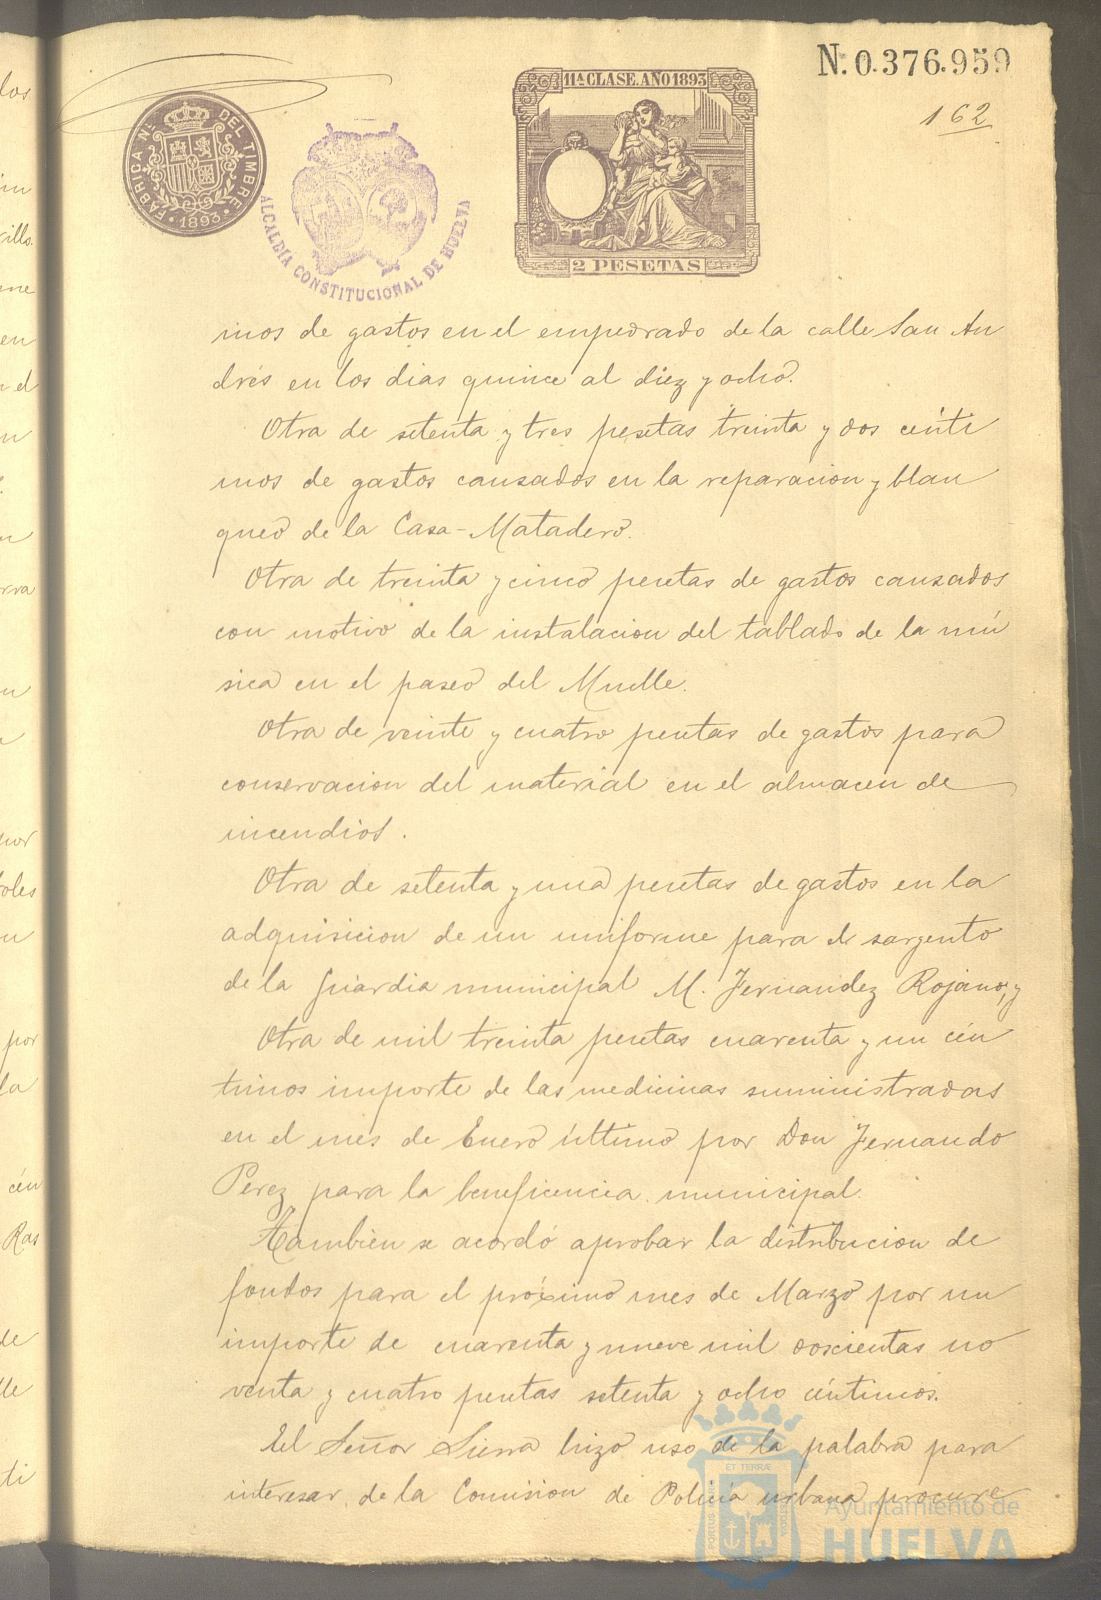 N. 0.376.959
162
11ª CLASE. AÑO 1893
FÁBRICA N.L DEL TIMBRE
1893
ALCALDÍA CONSTITUCIONAL DE HUELVA
2 PESETAS
mos de gastos en el empedrado de la calle San An
drés en los dias quince al diez y ocho.
Otra de setenta y tres pesetas treinta y dos cénti
mos de gastos causados en la reparacion y blan
queo de la Casa-Matadero.
Otra de treinta y cinco pesetas de gastos causados
con motivo de la instalacion del tablado de la mú
sica en el paseo del Muelle.
Otra de veinte y cuatro pesetas de gastos para
conservacion del material en el almacen de
incendios.
Otra de setenta y una pesetas de gastos en la
adquisicion de un uniforme para el sargento
de la Guardia municipal M. Fernandez Rojano, y
Otra de mil treinta pesetas cuarenta y un cén
timos importe de las medicinas suministradas
en el mes de Enero último por Don Fernando
Perez para la beneficencia municipal.
Tambien se acordó aprobar la distribucion de
fondos para el próximo mes de Marzo por un
importe de cuarenta y nueve mil doscientas no
venta y cuatro pesetas setenta y ocho céntimos.
El Señor Sierra hizo uso de la palabra para
interesar de la Comision de Policía urbana procure
PORTUS MARIS ET TERRÆ CUSTODIA
Ayuntamiento de
HUELVA